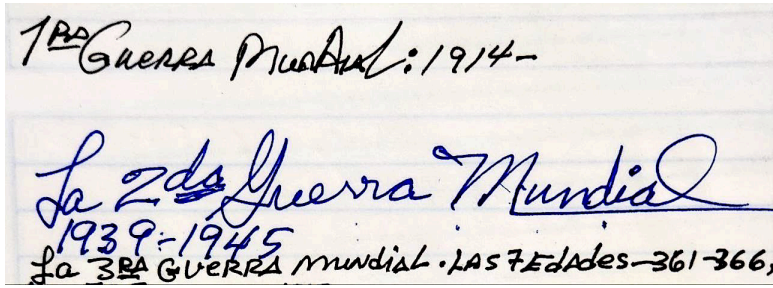 1RA Guerra Mundial: 1914-
La 2da Guerra Mundial
1939-1945
La 3RA Guerra mundial. Las 7 Edades-361-366,